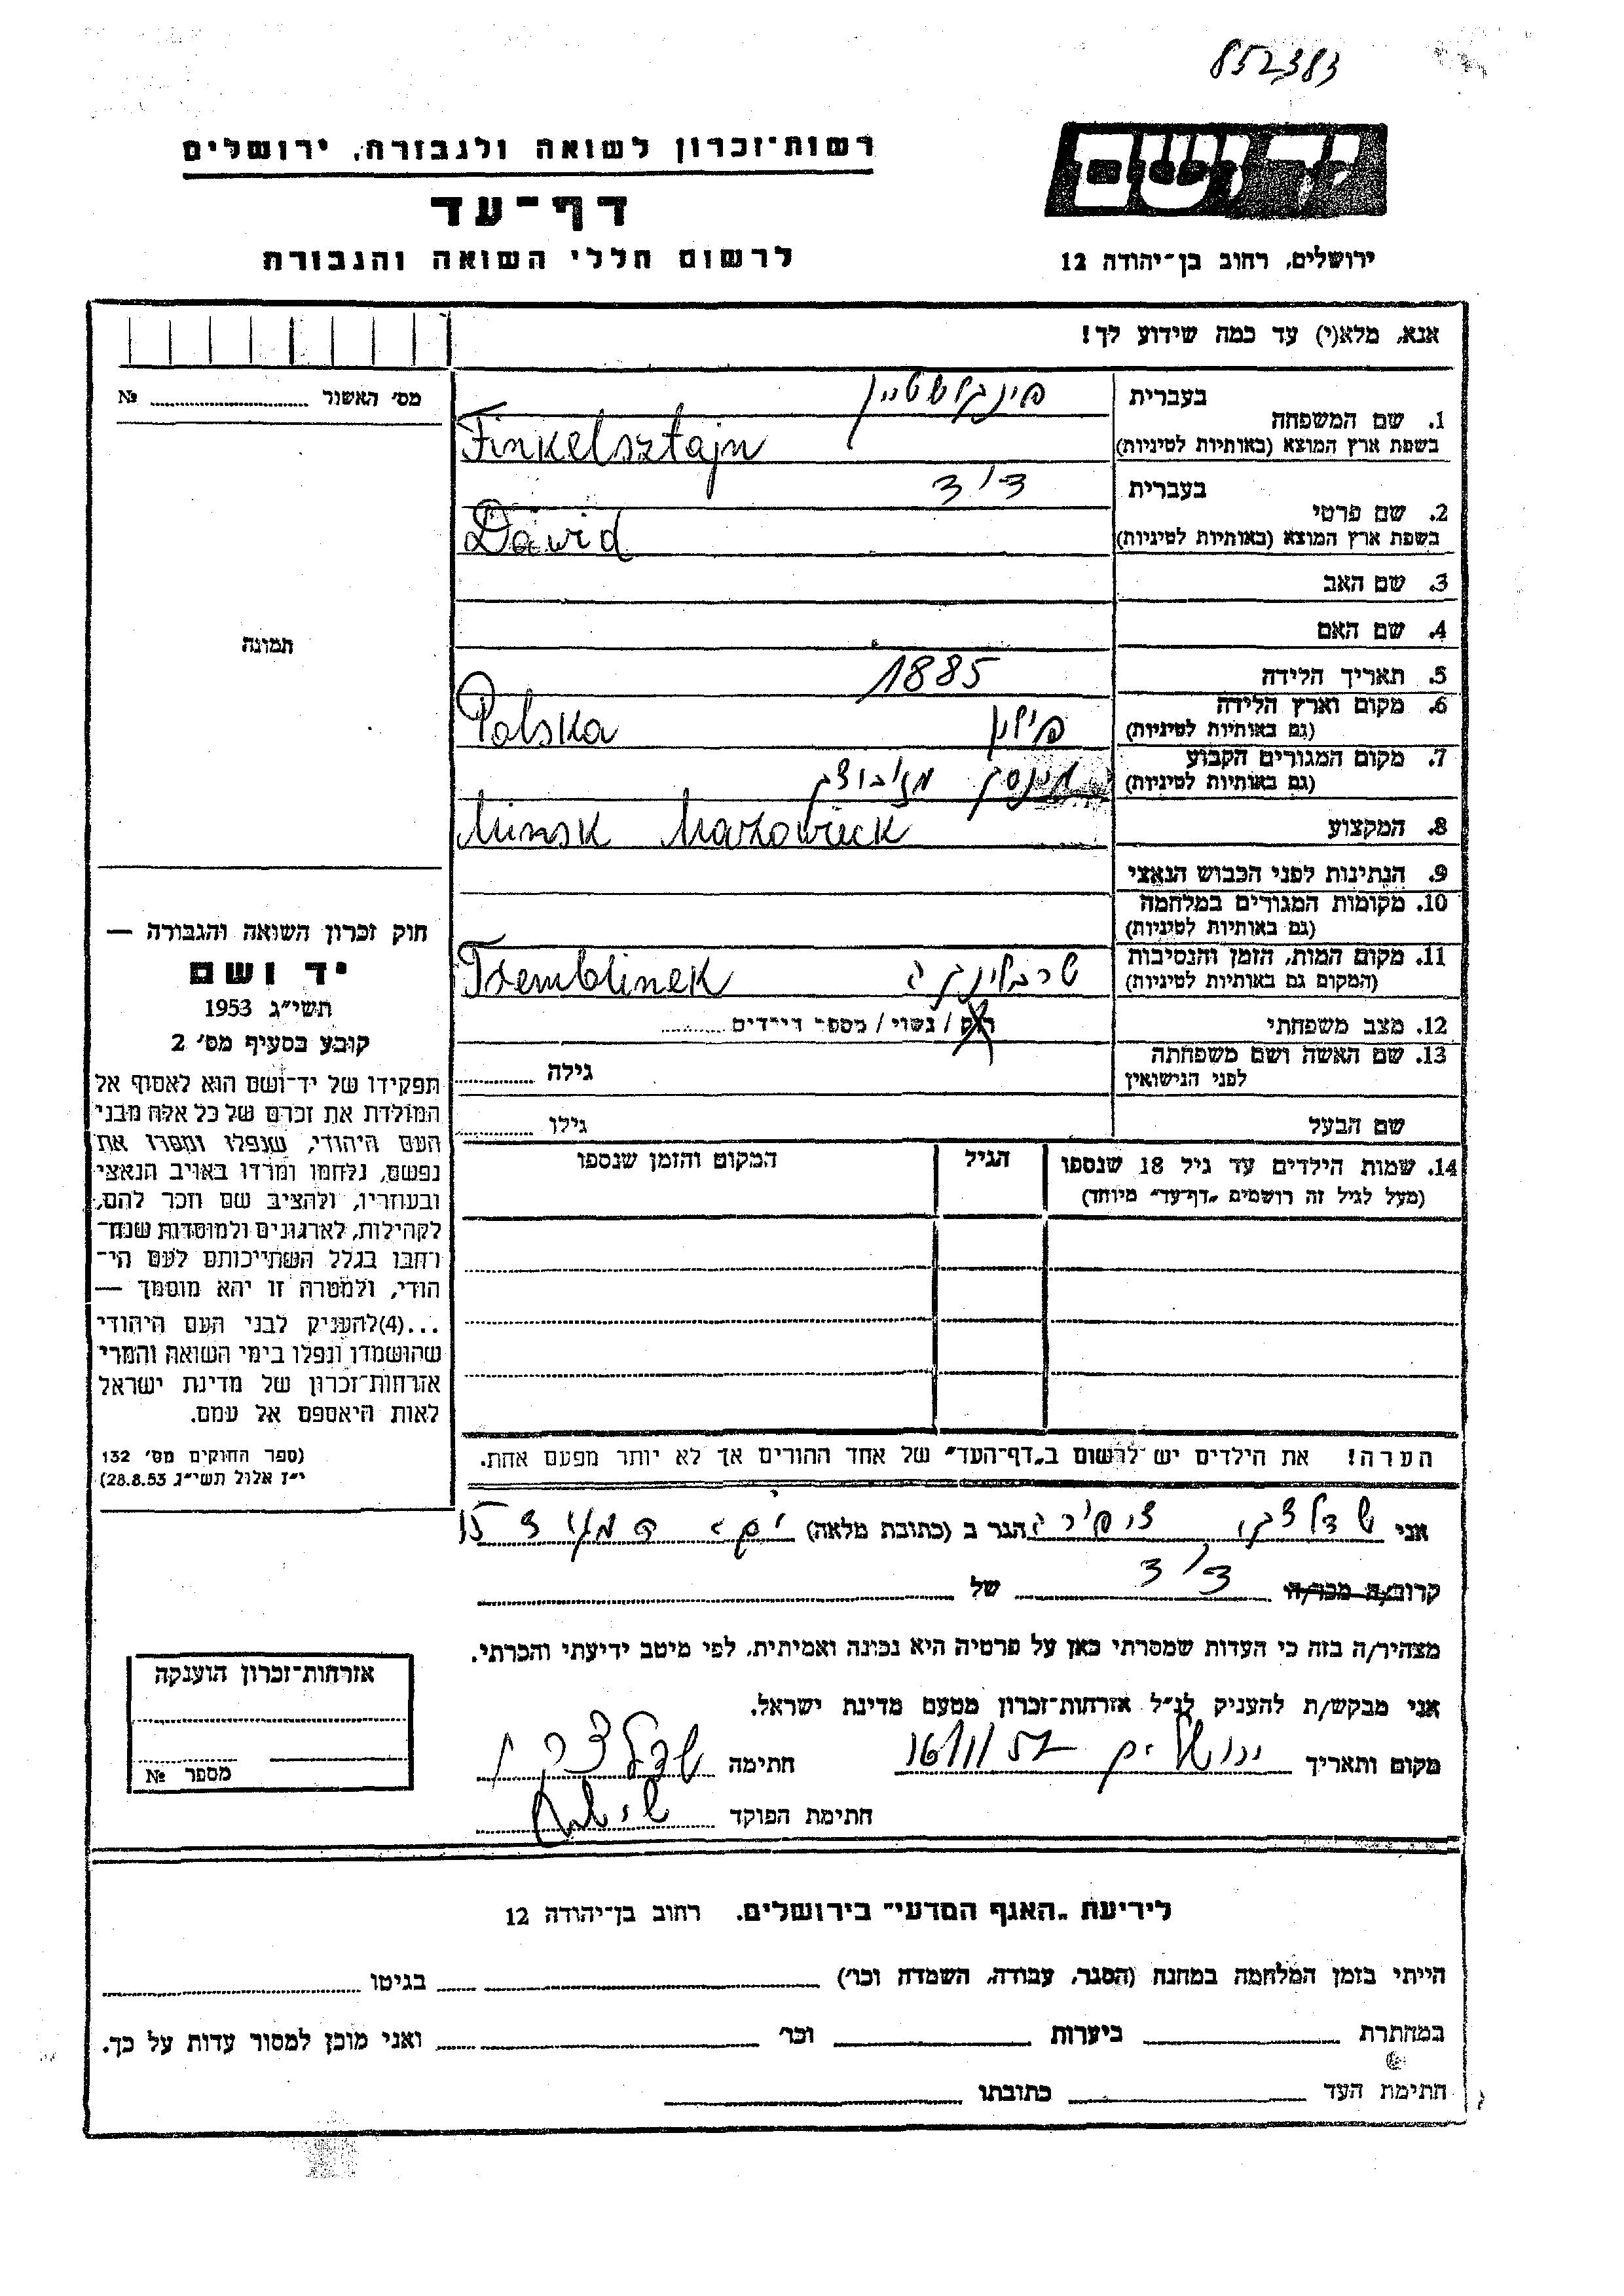 852383
רשות־זכרון לשואה ולגבורה, ירושלים
יד ושם
דף־עד
לרשום חללי השואה והגבורה
ירושלים, רחוב בן־יהודה 12
אנא, מלא(י) עד כמה שידוע לך!
מס׳ האשור № 
תמונה
1. שם המשפחה
בעברית פינקלשטיין
בשפת ארץ המוצא (באותיות לטיניות) Finkelsztajn
2. שם פרטי
בעברית דוד
בשפת ארץ המוצא (באותיות לטיניות) Dawid
3. שם האב
4. שם האם
5. תאריך הלידה 1885
6. מקום וארץ הלידה
(גם באותיות לטיניות) פולין Polska
7. מקום המגורים הקבוע
(גם באותיות לטיניות) מינסק
8. המקצוע Minsk Mazowieck
9. הנתינות לפני הכבוש הנאצי
10. מקומות המגורים במלחמה
(גם באותיות לטיניות)
11. מקום המות, הזמן והנסיבות
(המקום גם באותיות לטיניות) טרבלינקה Tremblinek
12. מצב משפחתי רוק / נשוי / מספר הילדים
13. שם האשה ושם משפחתה
לפני הנישואין גילה
שם הבעל גילו
14. שמות הילדים עד גיל 18 שנספו
(מעל לגיל זה רושמים „דף־עד״ מיוחד)
הגיל
המקום והזמן שנספו
הערה! את הילדים יש לרשום ב„דף־העד״ של אחד ההורים אך לא יותר מפעם אחת.
חוק זכרון השואה והגבורה —
יד ושם
תשי״ג 1953
קובע בסעיף מס׳ 2
תפקידו של יד־ושם הוא לאסוף אל
המולדת את זכרם של כל אלה מבני
העם היהודי, שנפלו ומסרו את
נפשם, נלחמו ומרדו באויב הנאצי
ובעוזריו, ולהציב שם וזכר להם,
לקהילות, לארגונים ולמוסדות שנח־
רחבו בגלל השתייכותם לעם הי־
הודי, ולמטרה זו יהא מוסמך —
...(4)להעניק לבני העם היהודי
שהושמדו ונפלו בימי השואה והמרי
אזרחות־זכרון של מדינת ישראל
לאות היאספם אל עמם.
(ספר החוקים מס׳ 132
י״ז אלול תשי״ג 28.8.53)
אני הגר ב (כתובת מלאה) 15
קרוב/ה מכר/ה דוד של
מצהיר/ה בזה כי העדות שמסרתי כאן על פרטיה היא נכונה ואמיתית, לפי מיטב ידיעתי והכרתי.
אני מבקש/ת להעניק לנ״ל אזרחות־זכרון מטעם מדינת ישראל.
מקום ותאריך ירושלים חתימה
חתימת הפוקד
אזרחות־זכרון הוענקה
מספר №
לידיעת „האגף המדעי״ בירושלים, רחוב בן־יהודה 12
הייתי בזמן המלחמה במחנה (הסגר, עבודה, השמדה וכו׳) בגיטו
במחתרת ביערות וכו׳ ואני מוכן למסור עדות על כך.
חתימת העד כתובתו